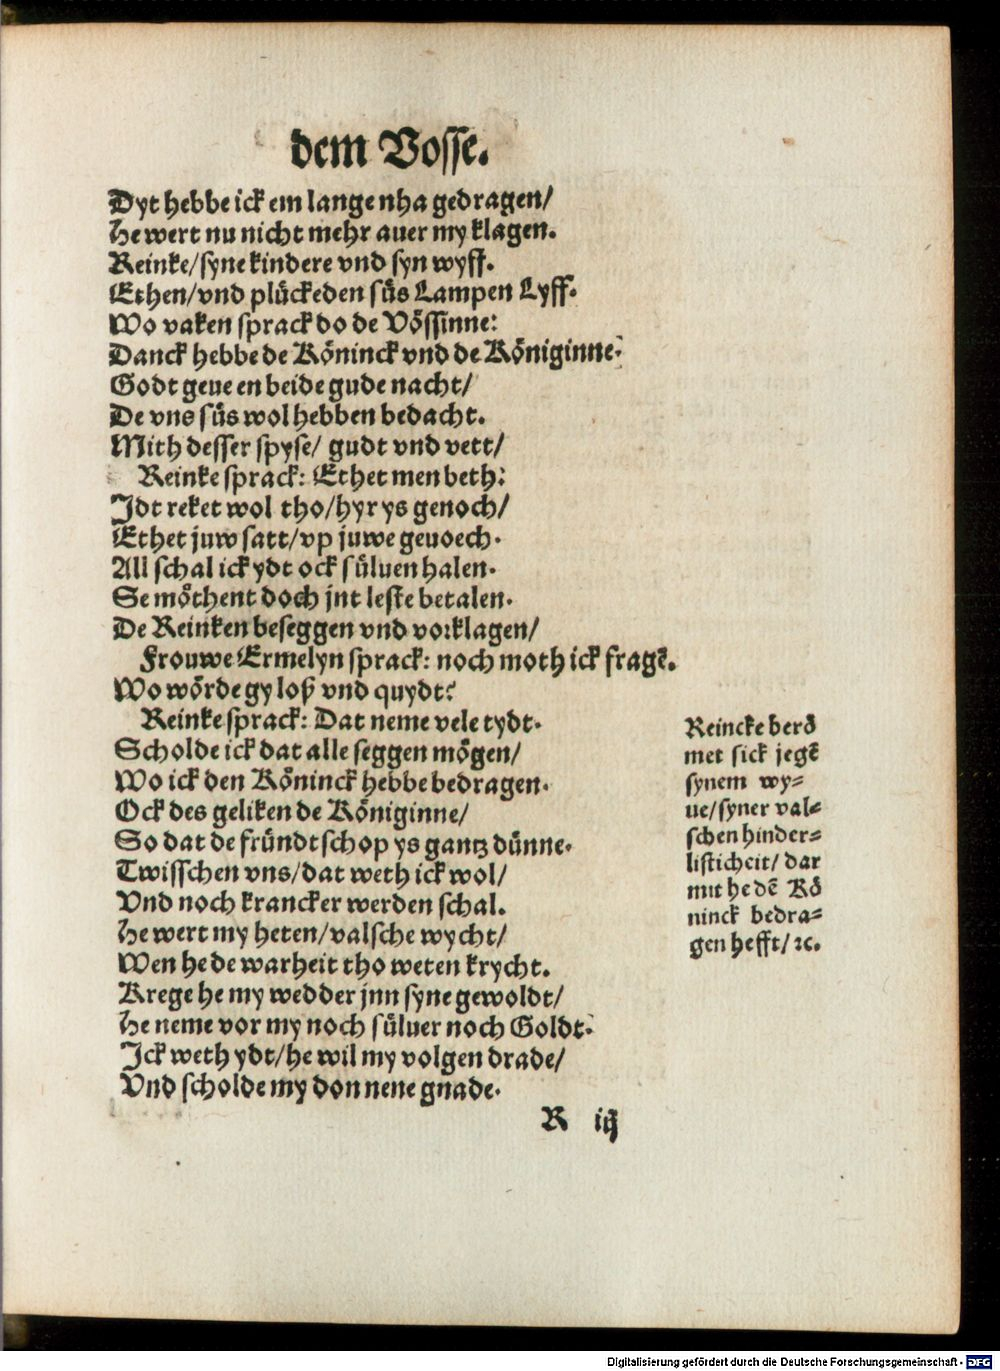 dem Vosse.
Dyt hebbe ick em lange nha gedragen/
He wert nu nicht mehr auer my klagen.
Reinke/syne kindere vnd syn wyff.
Ethen/vnd plückeden süs Lampen Lyff.
Wo vaken sprack do de Vössinne:
Danck hebbe de Köninck vnd de Königinne.
Godt geue en beide gude nacht/
De vns süs wol hebben bedacht.
Mith desser spyse/ gudt vnd vett/
Reinke sprack: Ethet men beth:
Idt reket wol tho/hyr ys genoch/
Ethet juw satt/vp juwe geuoech.
All schal ick ydt ock süluen halen.
Se möthent doch jnt leste betalen.
De Reinken beseggen vnd vorklagen/
Frouwe Ermelyn sprack: noch moth ick fragē.
Wo wörde gy loß vnd quydt?
Reinke sprack: Dat neme vele tydt.
Scholde ick dat alle seggen mögen/
Wo ick den Köninck hebbe bedragen.
Ock des geliken de Königinne/
So dat de fründtschop ys gantz dünne.
Twisschen vns/dat weth ick wol/
Vnd noch krancker werden schal.
He wert my heten/valsche wycht/
Wen he de warheit tho weten krycht.
Krege he my wedder jnn syne gewoldt/
He neme vor my noch süluer noch Goldt.
Ick weth ydt/he wil my volgen drade/
Vnd scholde my don nene gnade.
Reincke berö
met sick jegē
synem wy⸗
ue/syner val⸗
schen hinder⸗
listicheit/ dar
mit he dē Kö
ninck bedra⸗
gen hefft/ ꝛc.
R iij
Digitalisierung gefördert durch die Deutsche Forschungsgemeinschaft - DFG